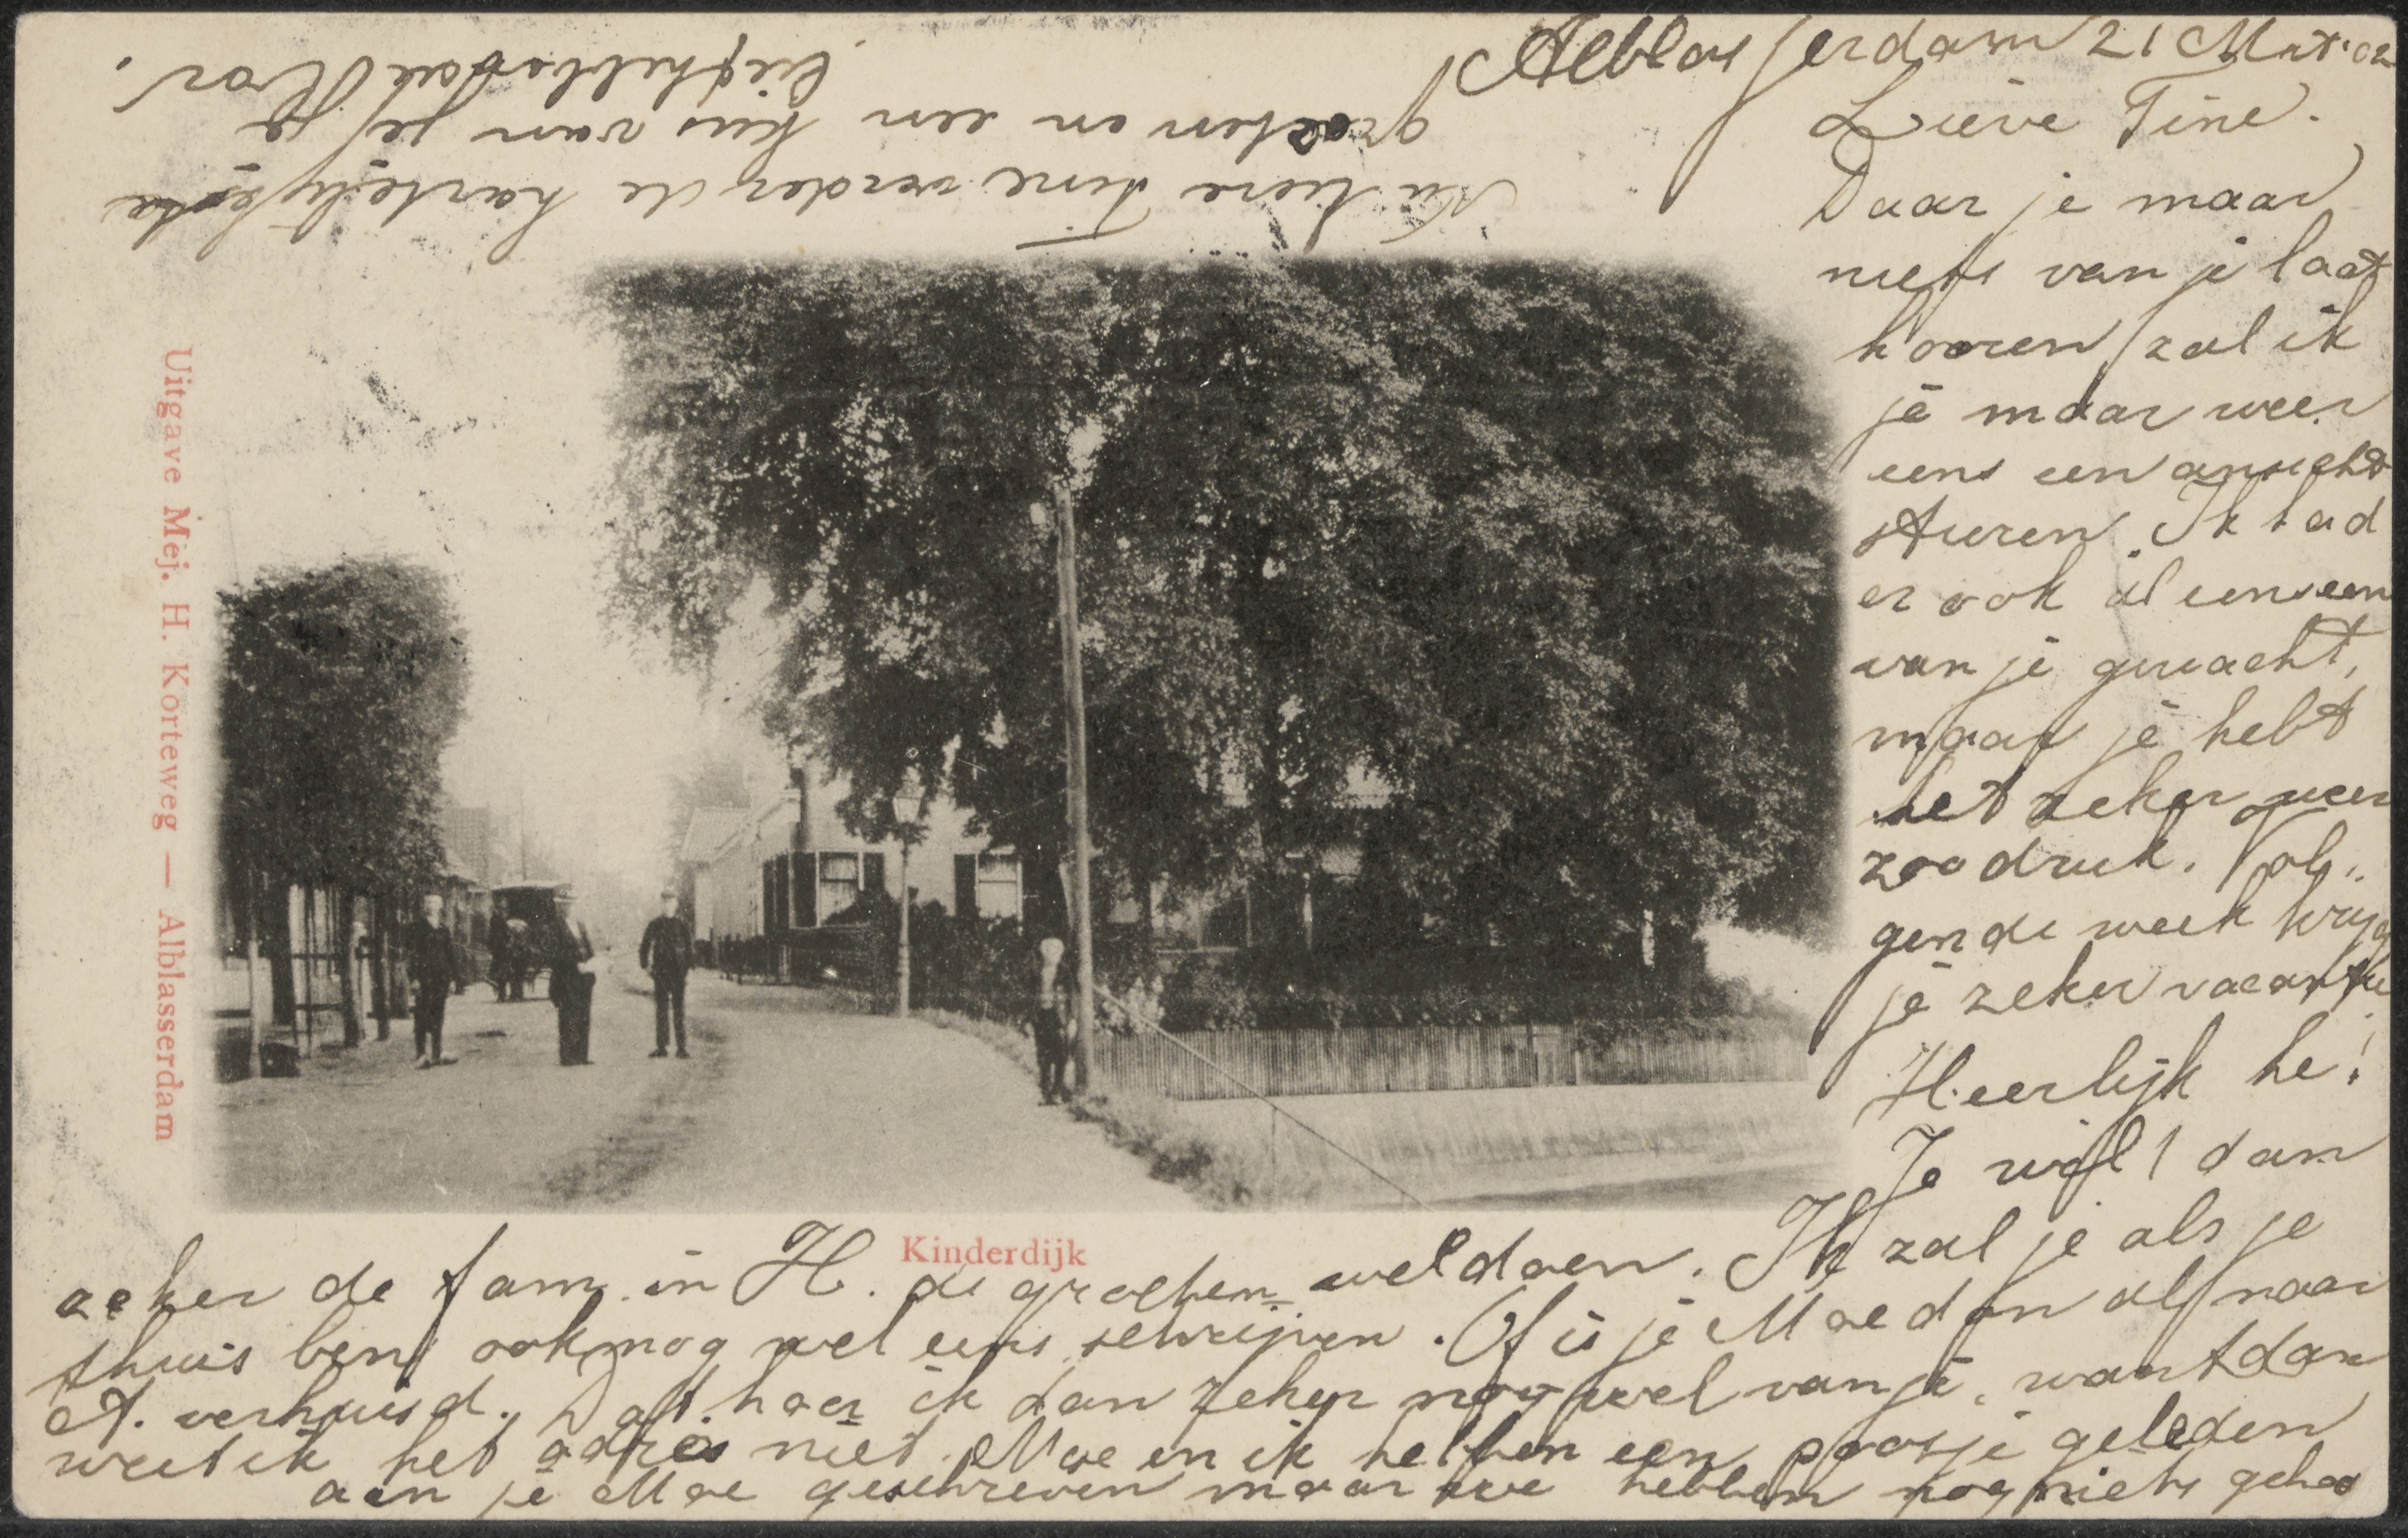 Alblasserdam 21 Mrt '02
Lieve Tine.
Daar je maar
niets van je laat
hooren zal ik
je maar weer
eens een ansicht
sturen. Ik had
er ook al eens een
van je gewacht,
maar je hebt
het zeker weer
zoo druk. Vol-
gende week krijg
je zeker vacantie
Heerlijk he!
Je wilt dan
zeker de fam. in H. de groeten wel doen. Ik zal je als je
thuis bent ook nog wel eens schrijven. Of is je Moe dan al naar
A. verhuisd. Dat hoor ik dan zeker nog wel van je, want dan
weet ik het adres niet. Moe en ik hebben een poosje geleden
aan je Moe geschreven maar we hebben nog niets gehoo
Nu lieve Tine verder de hartelijkste
groeten en een kus van je
liefhebbende Cor.
Kinderdijk
Uitgave Mej. H. Korteweg — Alblasserdam